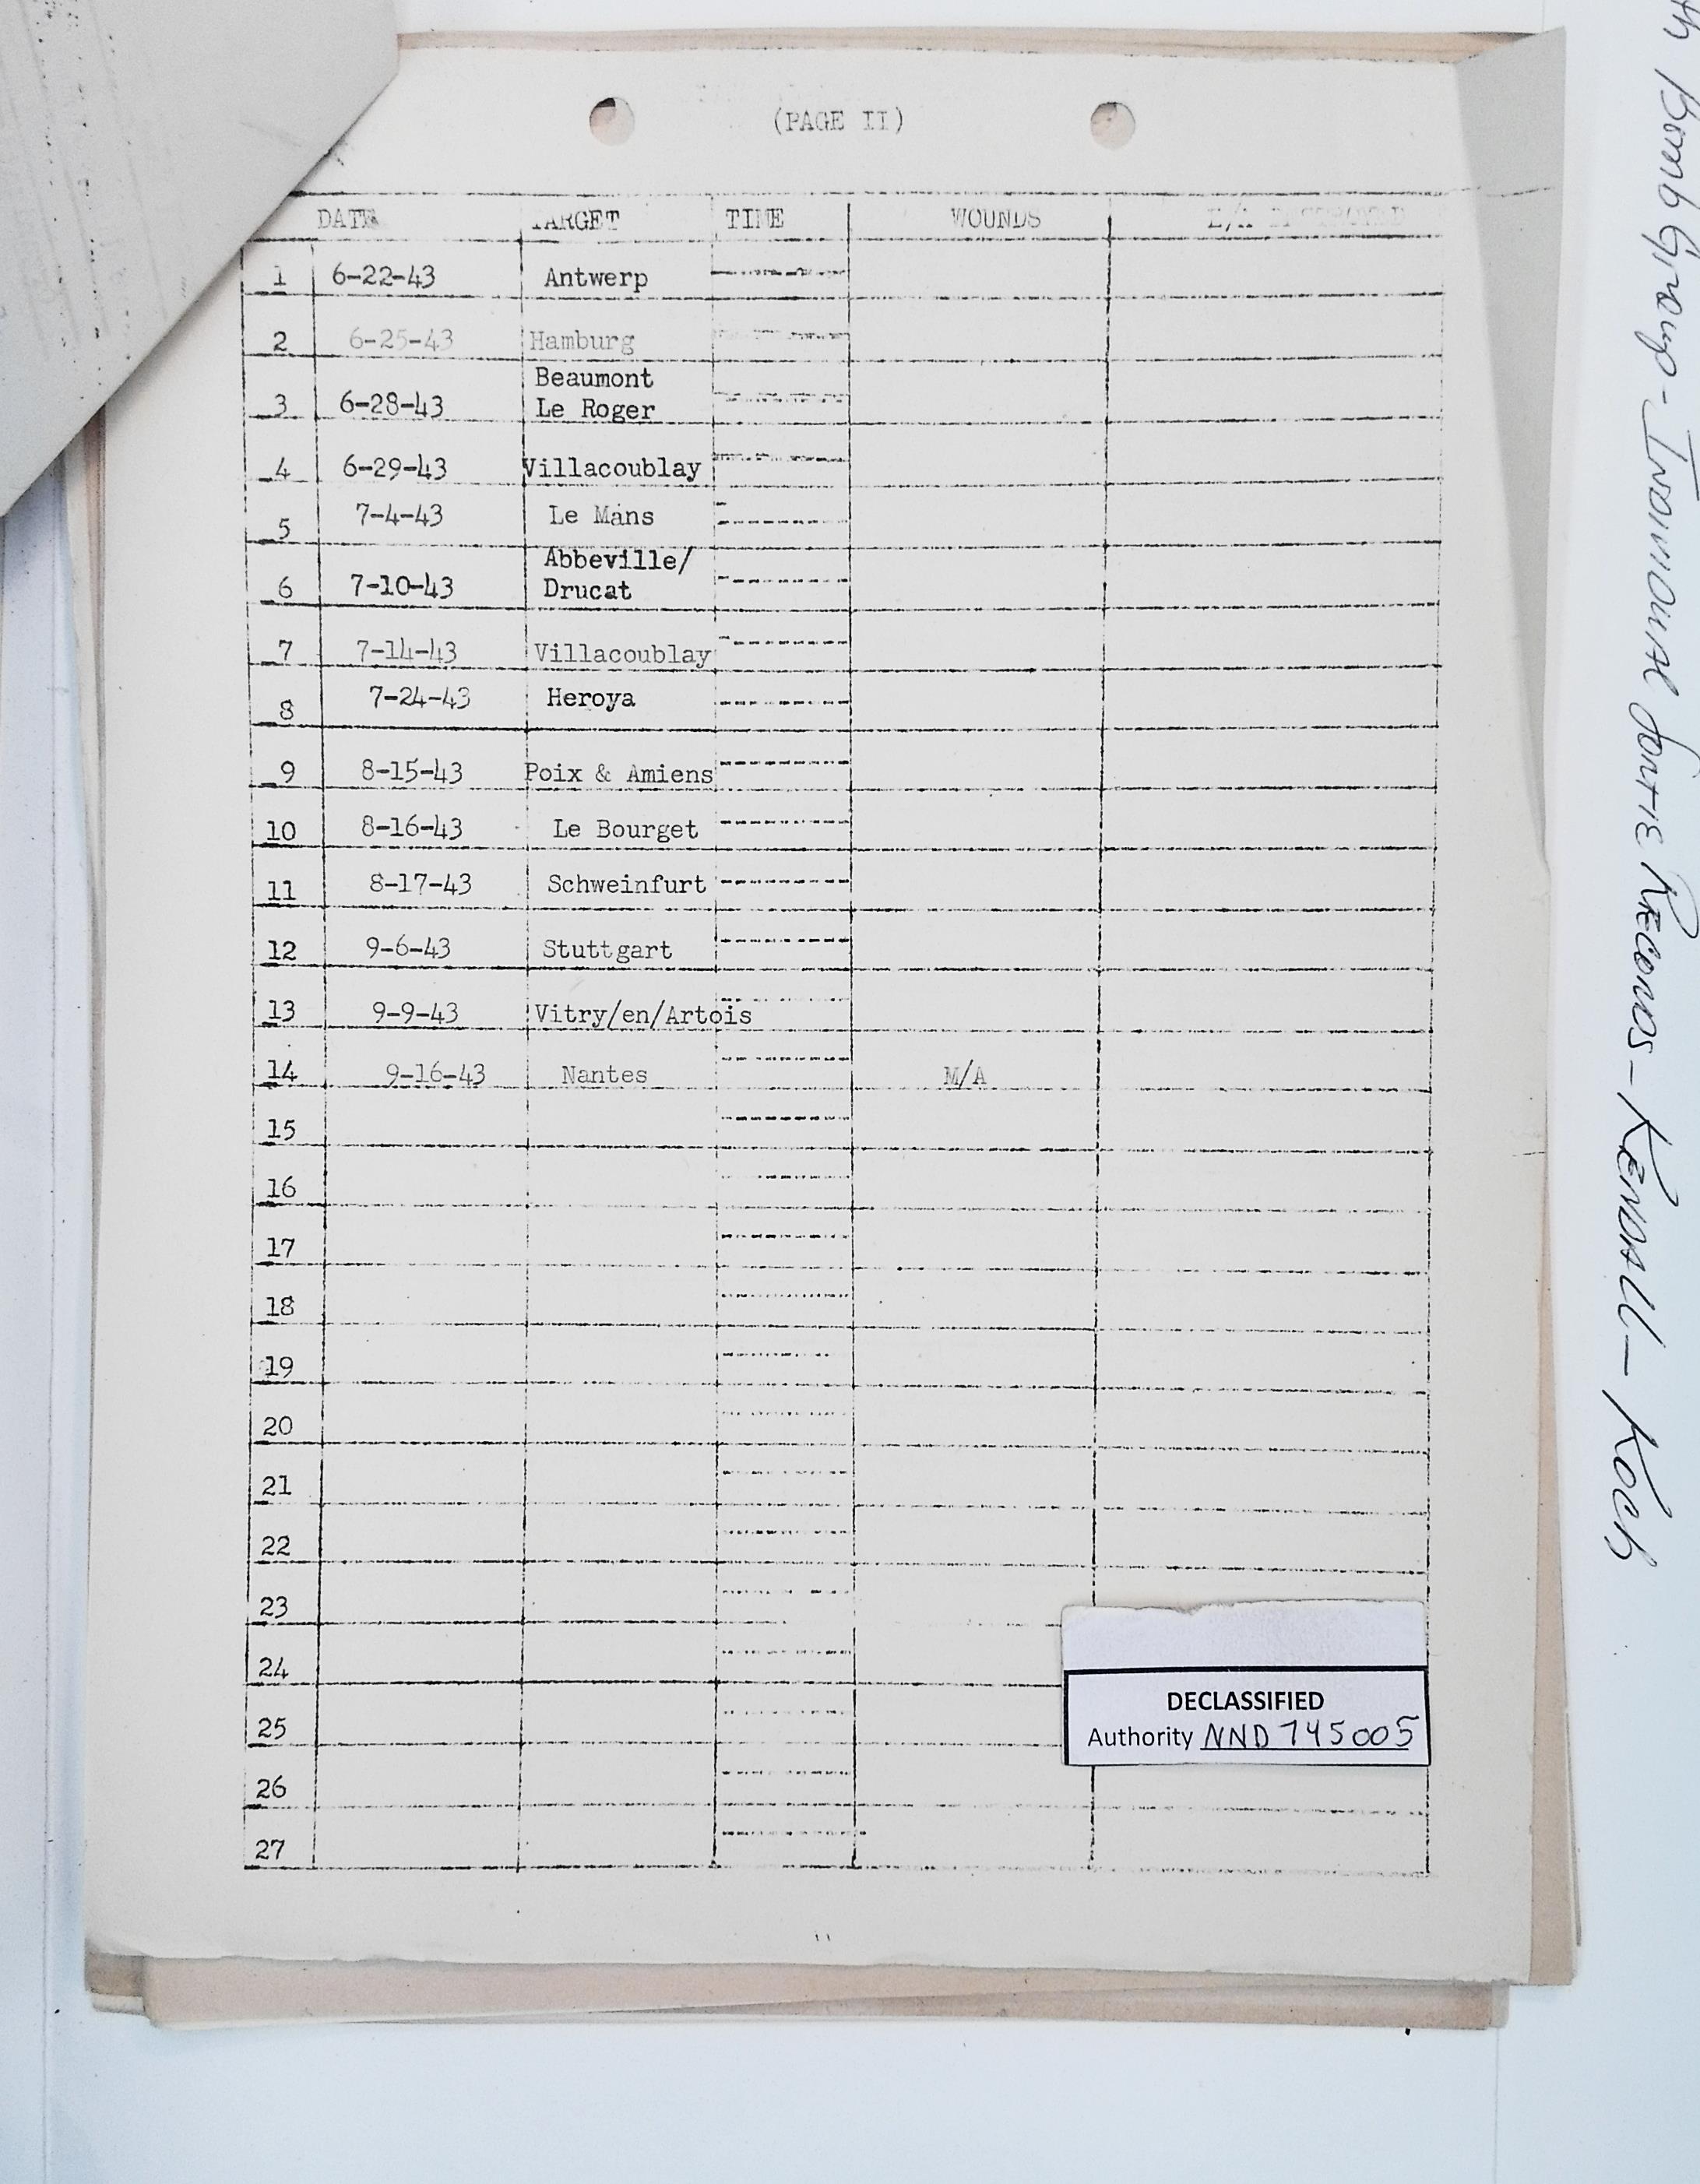 (PAGE II)
DATE TARGET TIME WOUNDS E/A
1 6-22-43 Antwerp
2 6-25-43 Hamburg
Beaumont
3 6-28-43 Le Roger
4 6-29-43 Villacoublay
5 7-4-43 Le Mans
Abbeville/
6 7-10-43 Drucat
7 7-14-43 Villacoublay
8 7-24-43 Heroya
9 8-15-43 Poix & Amiens
10 8-16-43 Le Bourget
11 8-17-43 Schweinfurt
12 9-6-43 Stuttgart
13 9-9-43 Vitry/en/Artois
14 9-16-43 Nantes M/A
15
16
17
18
19
20
21
22
23
24
25
26
27
DECLASSIFIED
Authority NND 745005
th Bomb Group - Individual Sortie Records - Kendall - Koch